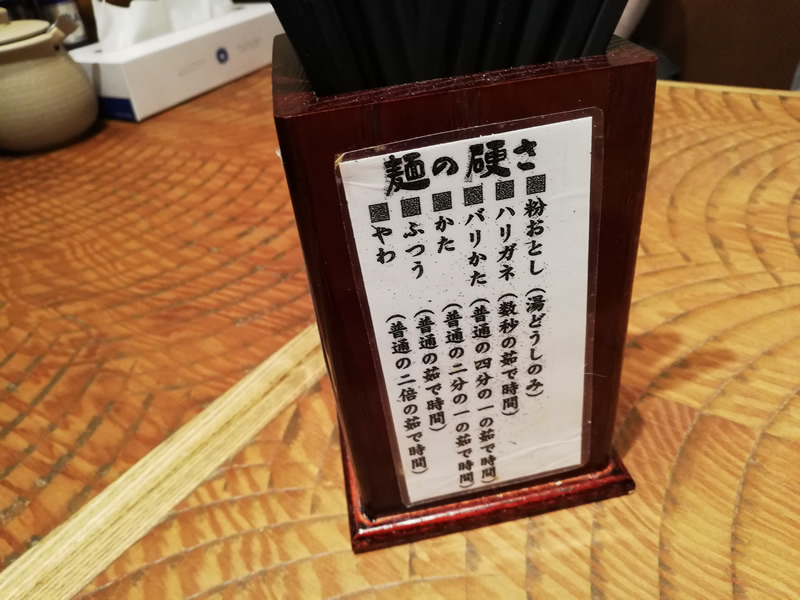 麺の硬さ
■粉おとし（湯どうしのみ）
■ハリガネ（数秒の茹で時間）
■バリかた（普通の四分の一の茹で時間）
■かた（普通の二分の一の茹で時間）
■ふつう（普通の茹で時間）
■やわ（普通の二倍の茹で時間）